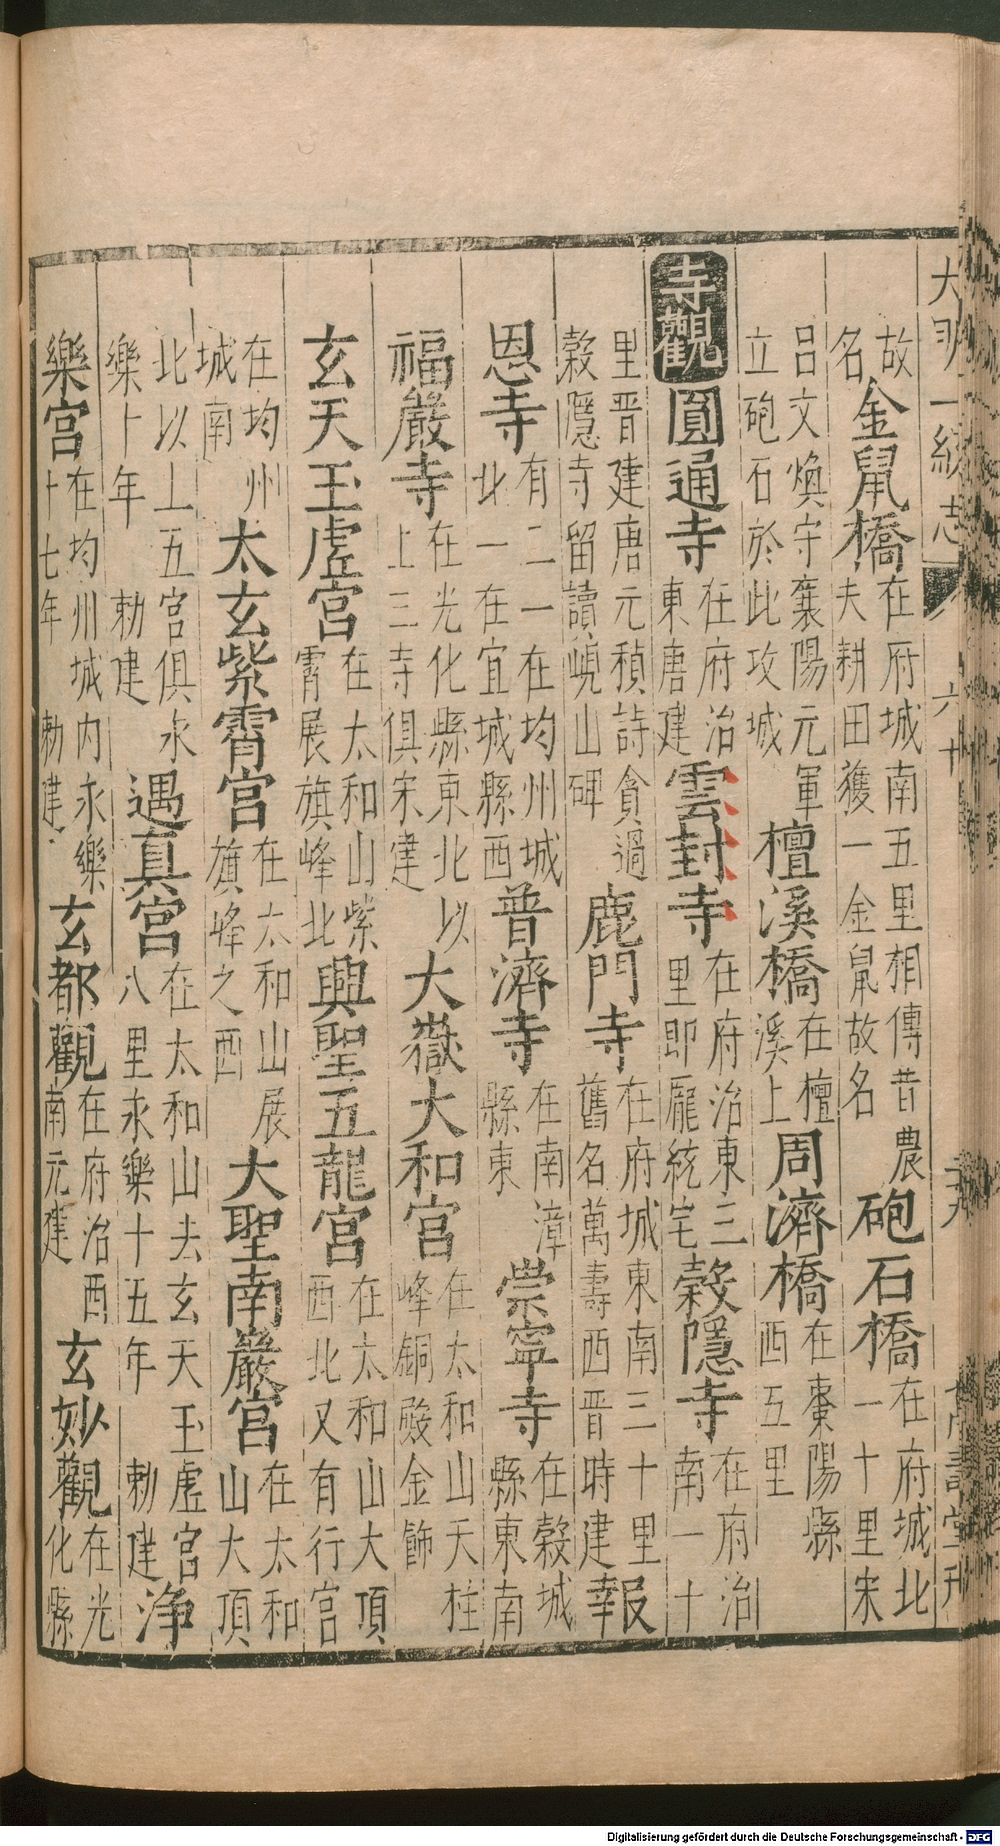 大明一統志 六十 萬壽堂刊
故名金鼠橋在府城南五里相傳昔農夫耕田獲一金鼠故名砲石橋在府城北一十里宋
呂文煥守襄陽元軍立砲石於此攻城檀溪橋在檀溪上周濟橋在棗陽縣西五里
寺觀圓通寺在府治東唐建雲封寺在府治東三里即龐統宅穀隱寺在府治南一十
里晋建唐元稹詩貪過穀隱寺留讀峴山碑鹿門寺在府城東南三十里舊名萬壽西晋時建報
恩寺有二一在均州城北一在宜城縣西普濟寺在南漳縣東崇寧寺在穀城縣東南
福嚴寺在光化縣東北以上三寺俱宋建大嶽大和宮在太和山天柱峰銅殿金飾
玄天玉虛宮在太和山紫霄展旗峰北興聖五龍宮在太和山大頂西北又有行宮
在均州城南太玄紫霄宮在太和山展旗峰之西大聖南巖宮在太和山大頂
北以上五宮俱永樂十年勅建遇真宮在太和山去玄天玉虛宮八里永樂十五年勅建淨
樂宮在均州城内永樂十七年勅建玄都觀在府治西南元建玄妙觀在光化縣
Digitalisierung gefördert durch die Deutsche Forschungsgemeinschaft - DFG